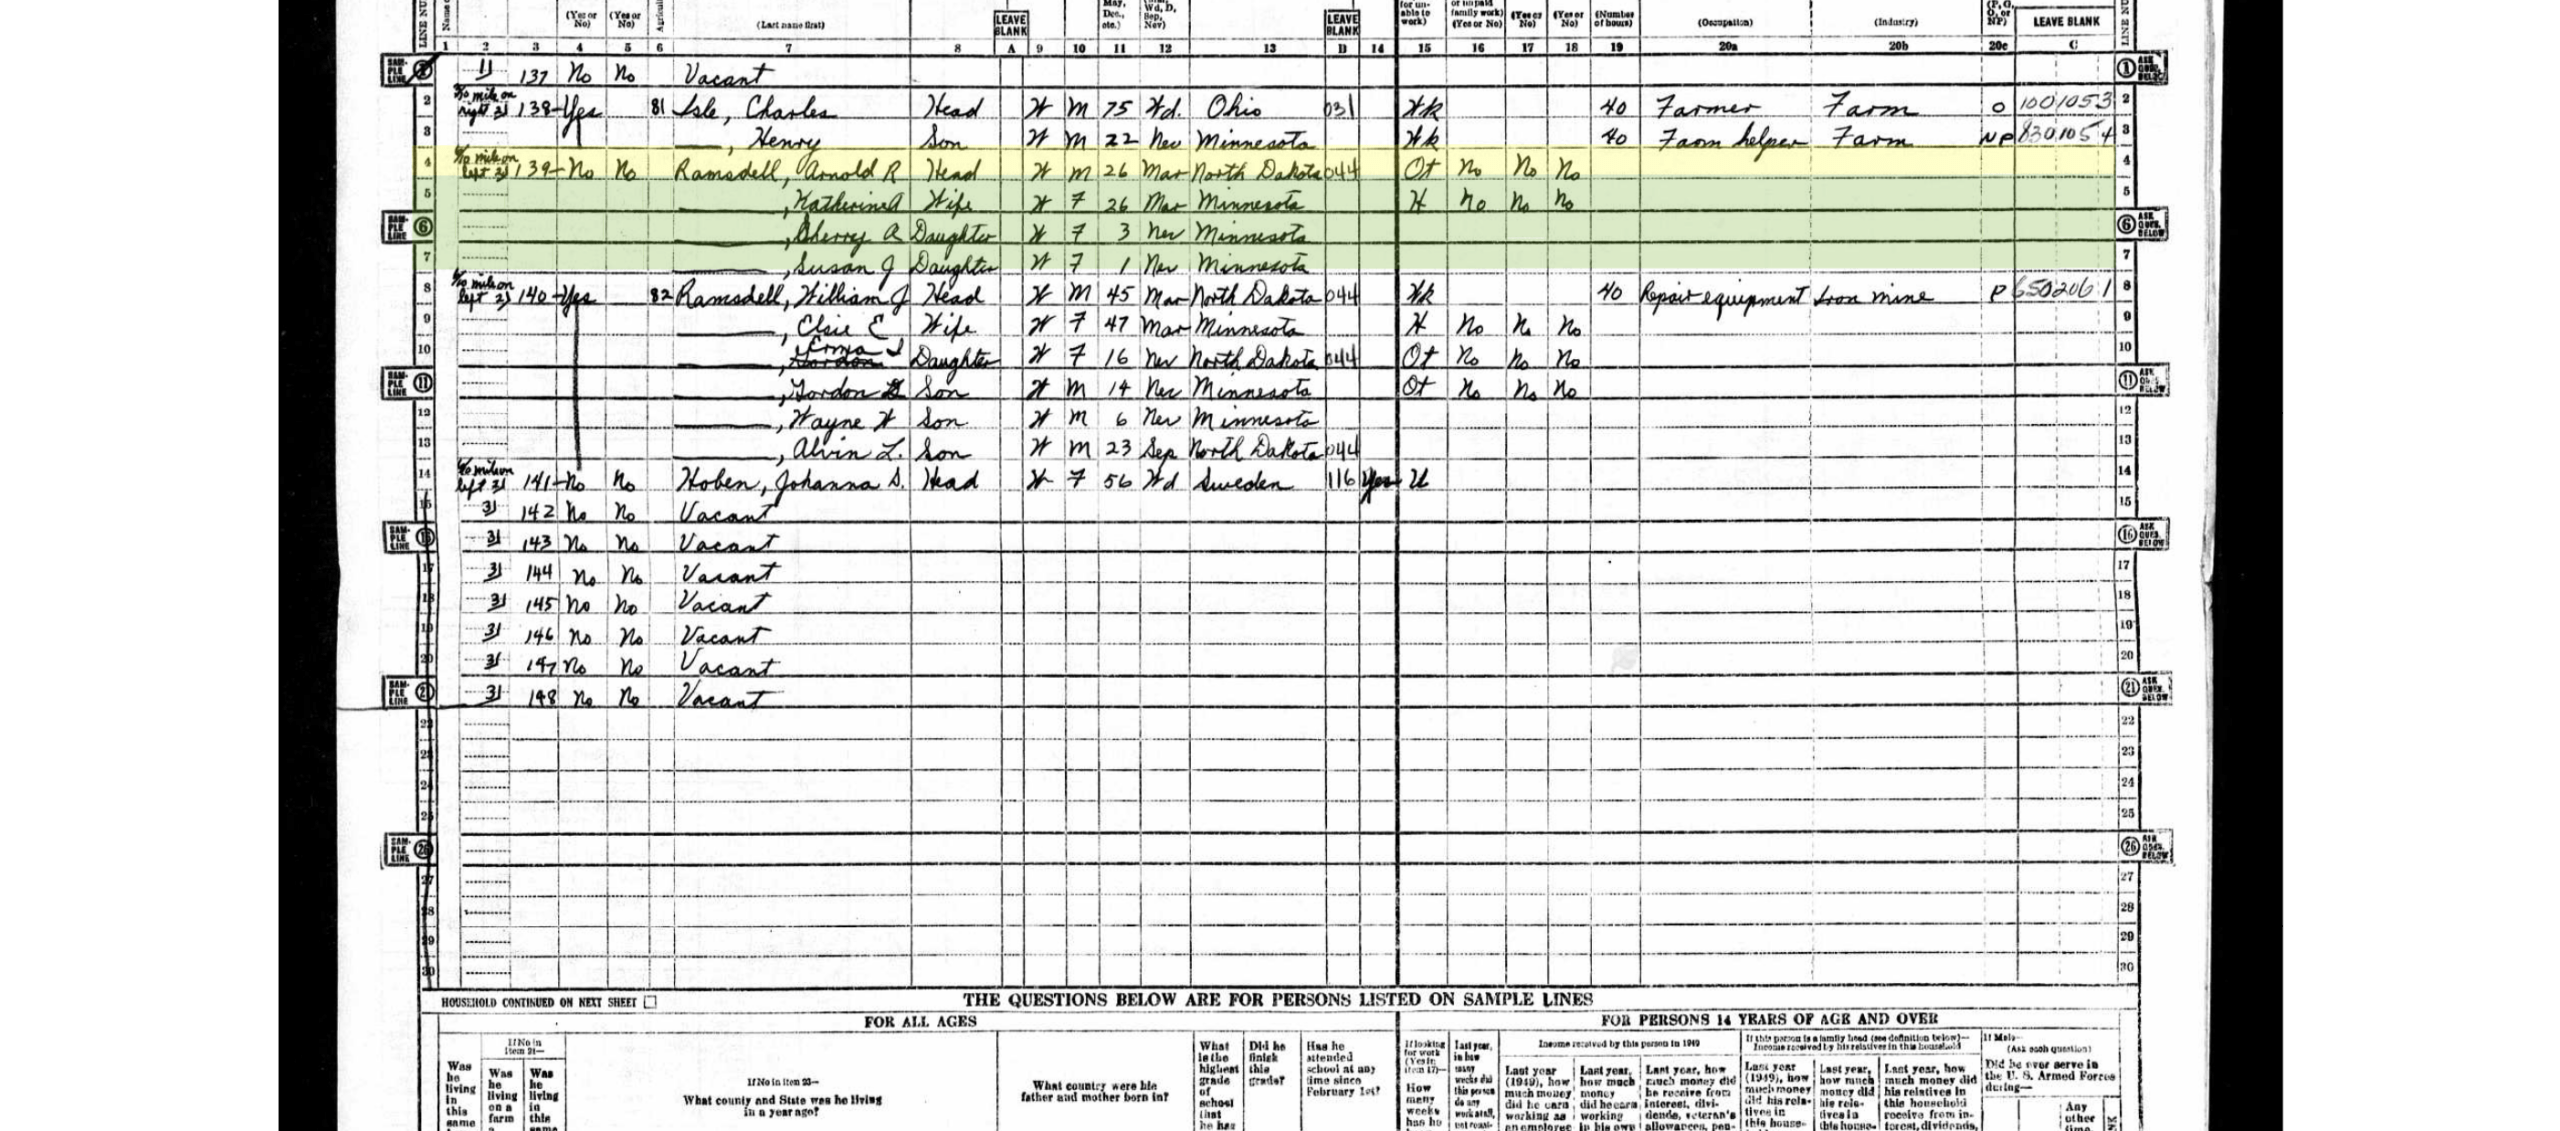 LINE NU
Name o
(Yes or No) (Yes or No) Agricul (Last name first) LEAVE BLANK May, Dec., etc.) Wd, D, Sep, Nev) LEAVE BLANK for un- able to work) or unpaid family work) (Yes or No) (Yes or No) (Yes or No) (Number of hours) (Occupation) (Industry) (P, G, O, or NP) LEAVE BLANK LINE NU
1 2 3 4 5 6 7 8 A 9 10 11 12 13 B 14 15 16 17 18 19 20a 20b 20c C
SAM- PLE LINE 1 11 137 No No Vacant 1 ASK QUES. BELOW
2 mile on right 31 138 Yes 81 Isle, Charles Head W M 75 Wd. Ohio 031 Wk 40 Farmer Farm O 1001053 2
3 ——, Henry Son W M 22 Nev Minnesota Wk 40 Farm helper Farm NP 830105 4 3
4 mile on left 31 139 No No Ramsdell, Arnold R Head W M 26 Mar North Dakota 044 Ot No No No 4
5 ——, Katherine A Wife W F 26 Mar Minnesota H No No No 5
SAM- PLE LINE 6 ——, Sherry A Daughter W F 3 Nev Minnesota 6 ASK QUES. BELOW
7 ——, Susan J Daughter W F 1 Nev Minnesota 7
8 mile on left 31 140 Yes 82 Ramsdell, William J Head W M 45 Mar North Dakota 044 Wk 40 Repair equipment Iron mine P 650206 1 8
9 ——, Elsie E Wife W F 47 Mar Minnesota H No No No 9
10 ——, Erma J Gordon Daughter W F 16 Nev North Dakota 044 Ot No No No 10
SAM- PLE LINE 11 ——, Gordon Son W M 14 Nev Minnesota Ot No No No 11 ASK QUES. BELOW
12 ——, Wayne W Son W M 6 Nev Minnesota 12
13 ——, Alvin L. Son W M 23 Sep North Dakota 044 13
14 mile on left 31 141 No No Hoben, Johanna S. Head W F 56 Wd Sweden 116 Yes U 14
15 31 142 No No Vacant 15
SAM- PLE LINE 16 31 143 No No Vacant 16 ASK QUES. BELOW
17 31 144 No No Vacant 17
18 31 145 No No Vacant 18
19 31 146 No No Vacant 19
20 31 147 No No Vacant 20
SAM- PLE LINE 21 31 148 No No Vacant 21 ASK QUES. BELOW
22 22
23 23
24 24
25 25
SAM- PLE LINE 26 26 ASK QUES. BELOW
27 27
28 28
29 29
30 30
HOUSEHOLD CONTINUED ON NEXT SHEET THE QUESTIONS BELOW ARE FOR PERSONS LISTED ON SAMPLE LINES
FOR ALL AGES FOR PERSONS 14 YEARS OF AGE AND OVER
Was he living in this same
If No in item 21—
Was he living on a farm
Was he living in this same
If No in item 23—
What county and State was he living in a year ago?
What country were his father and mother born in?
What is the highest grade of school that he has
Did he finish this grade?
Has he attended school at any time since February 1st?
If looking for work (Yes in item 17)—
How many weeks has he
Last year, in how many weeks did this person do any work at all,
Income received by this person in 1949
Last year (1949), how much money did he earn working as an employee
Last year, how much money did he earn working in his own
Last year, how much money did he receive from interest, divi- dends, veteran's allowances, pen-
If this person is a family head (see definition below)—
Income received by his relatives in this household
Last year (1949), how much money did his rela- tives in this house-
Last year, how much money did his rela- tives in this house-
Last year, how much money did his relatives in this household receive from in- terest, dividends,
If Male—
(Ask each question)
Did he ever serve in the U. S. Armed Forces during—
Any other time,